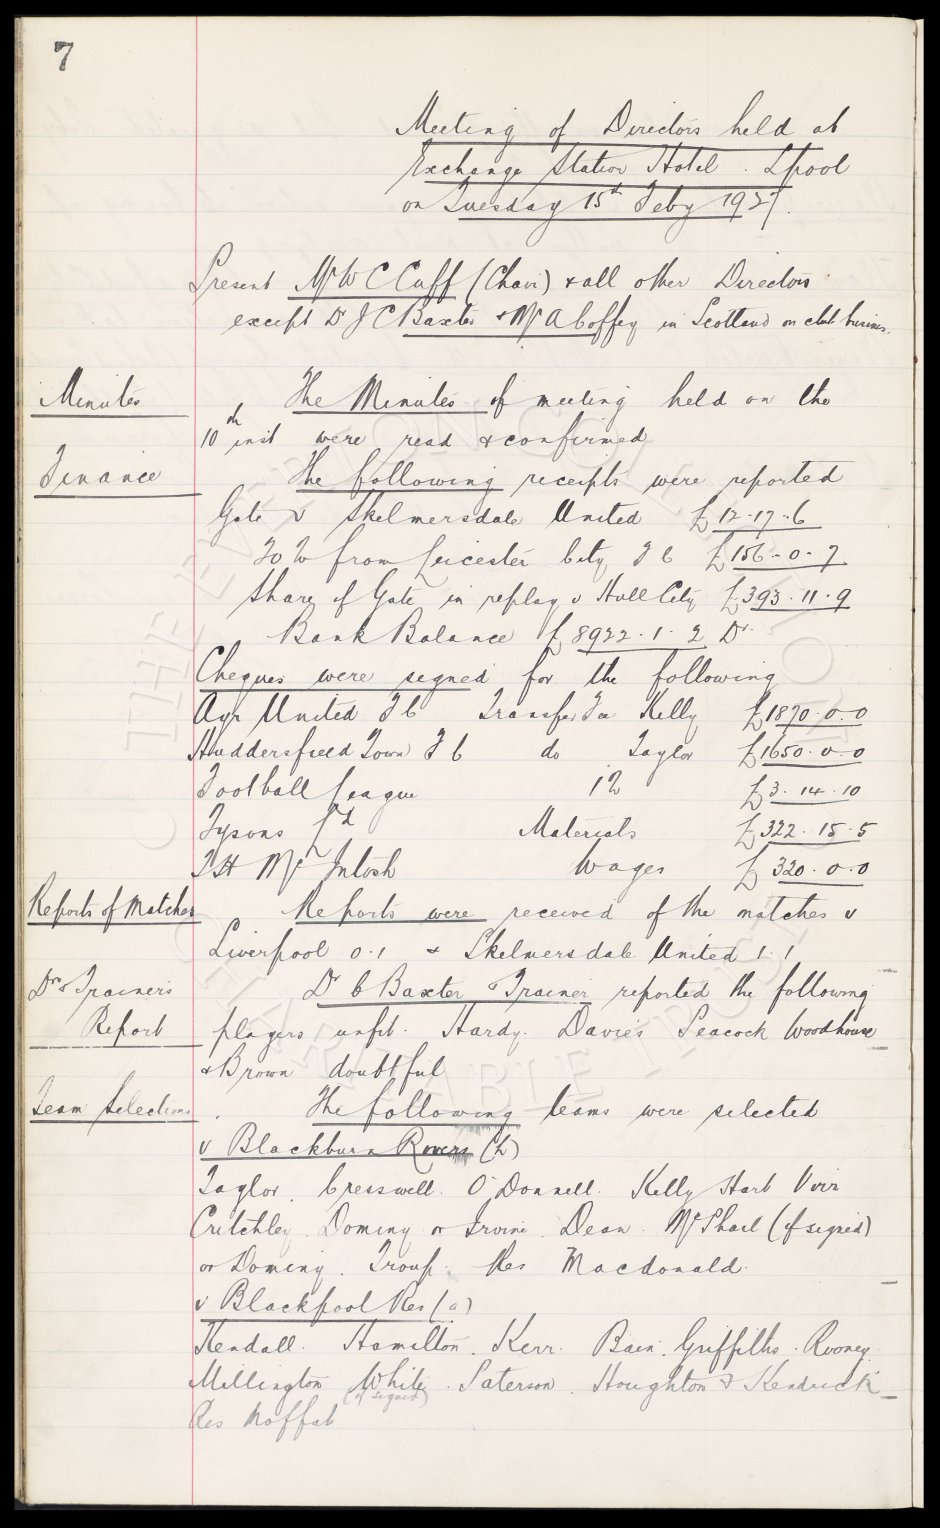 7
Meeting of Directors held at
Exchange Station Hotel. Lpool
on Tuesday 15th Feby 1927.
Present Mr W C Cuff (Chair) & all other Directors
except Dr J C Baxter & Mr A Coffey in Scotland on club business.
Minutes
The Minutes of meeting held on the
10th inst were read & confirmed
Finance
The following receipts were reported
Gate v Skelmersdale United £12-17-6
from Leicester City F C £156-0-7
Share of Gate in replay v Hull City £393.11.9
Bank Balance £8922.1.2 Dr.
Cheques were signed for the following
Ayr United F C Transfer Fee Kelly £1870.0.0
Huddersfield Town F C do Taylor £1650.0.0
Football League £3.14.10
Tysons Ld Materials £322.15.5
T H McIntosh Wages £320.0.0
Reports of Matches
Reports were received of the matches v
Liverpool 0.1 & Skelmersdale United 1.1
Dr & Trainers
Report
Dr C Baxter & Trainer reported the following
players unfit. Hardy. Davies Peacock Woodhouse
& Brown doubtful
Team Selections
The following teams were selected
v Blackburn Rovers (h)
Taylor. Cresswell. O'Donnell. Kelly Hart Virr
Critchley. Dominy or Irvine. Dean. McPhail (if signed)
or Dominy. Troup. Res Macdonald.
v Blackpool Res (a)
Kendall. Hamilton. Kerr. Bain. Griffiths. Rooney.
Millington White (if signed). Paterson. Houghton & Kendrick
Res Moffat
THE EVERTON COLLECTION
CHARITABLE TRUST